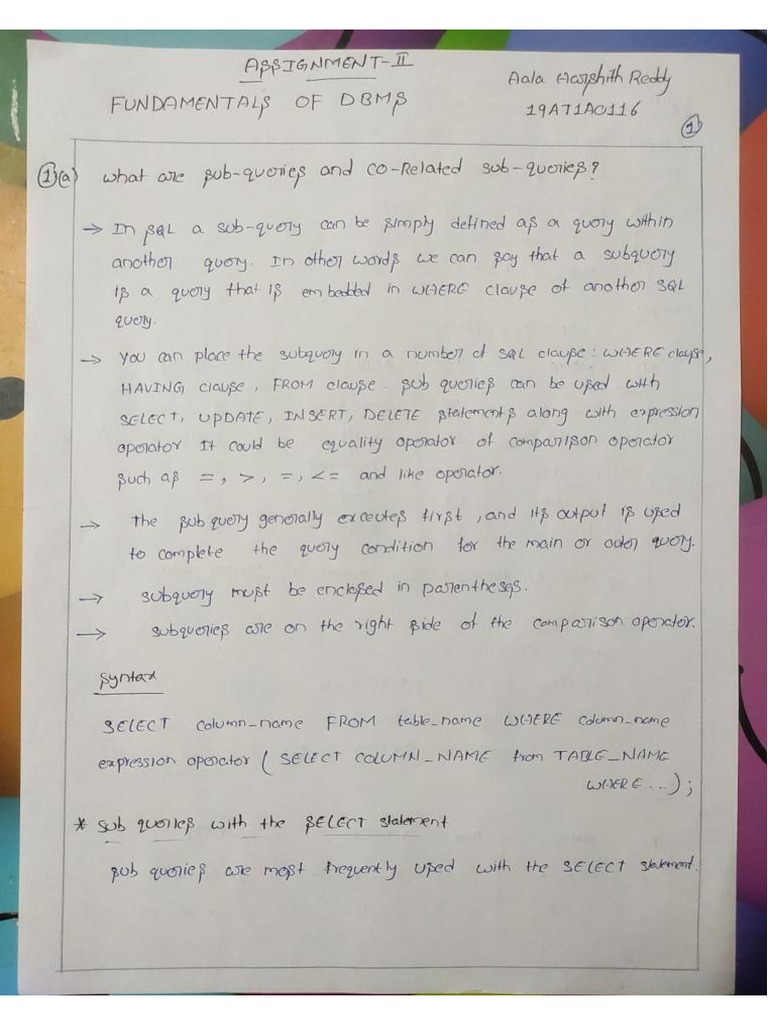 ASSIGNMENT-II
Aala Harshith Reddy
FUNDAMENTALS OF DBMS
19AT1A0116
1
1 (a) What are sub-queries and co-Related sub-queries?
→ In SQL a sub-query can be simply defined as a query within
another query. In other words we can say that a subquery
is a query that is embedded in WHERE clause of another SQL
query.
→ You can place the subquery in a number of SQL clause: WHERE clause,
HAVING clause, FROM clause. sub queries can be used with
SELECT, UPDATE, INSERT, DELETE statements along with expression
operator It could be equality operator of comparison operator
such as =, >, =, <= and like operator.
→ The sub query generally executes first, and its output is used
to complete the query condition for the main or outer query.
→ subquery must be enclosed in parentheses.
→ subqueries are on the right side of the comparison operator.
Syntax
SELECT column_name FROM table_name WHERE column_name
expression operator ( SELECT COLUMN_NAME from TABLE_NAME
WHERE ... );
* sub queries with the SELECT statement
sub queries are most frequently used with the SELECT statement.